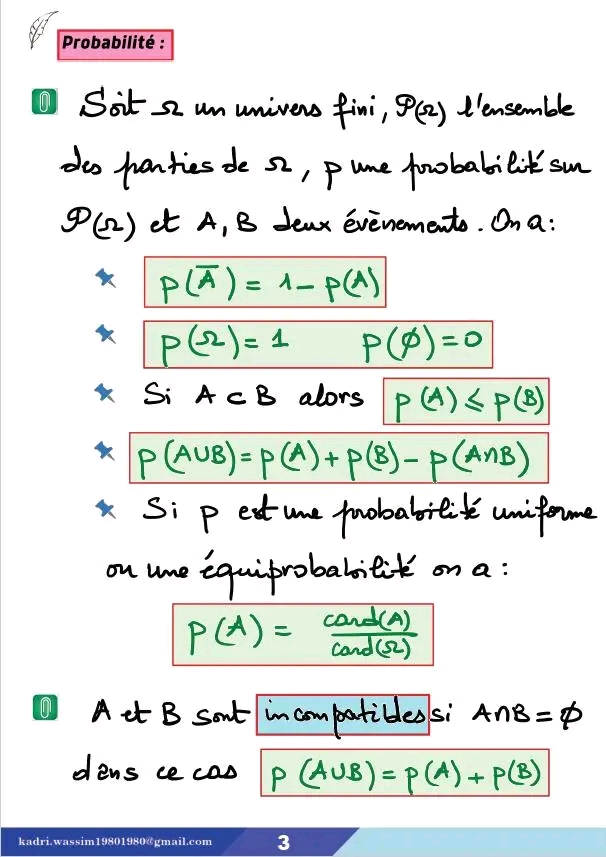 Probabilité :
Soit Ω un univers fini, 𝒫(Ω) l'ensemble
des parties de Ω, p une probabilité sur
𝒫(Ω) et A, B deux évènements. On a :
p(A̅) = 1 - p(A)
p(Ω) = 1 p(∅) = 0
Si A ⊂ B alors p(A) ≤ p(B)
p(A∪B) = p(A) + p(B) - p(A∩B)
Si p est une probabilité uniforme
ou une équiprobabilité on a :
p(A) = card(A)
card(Ω)
A et B sont incompatibles si A∩B = ∅
dans ce cas p(A∪B) = p(A) + p(B)
kadri.wassim19801980@gmail.com 3